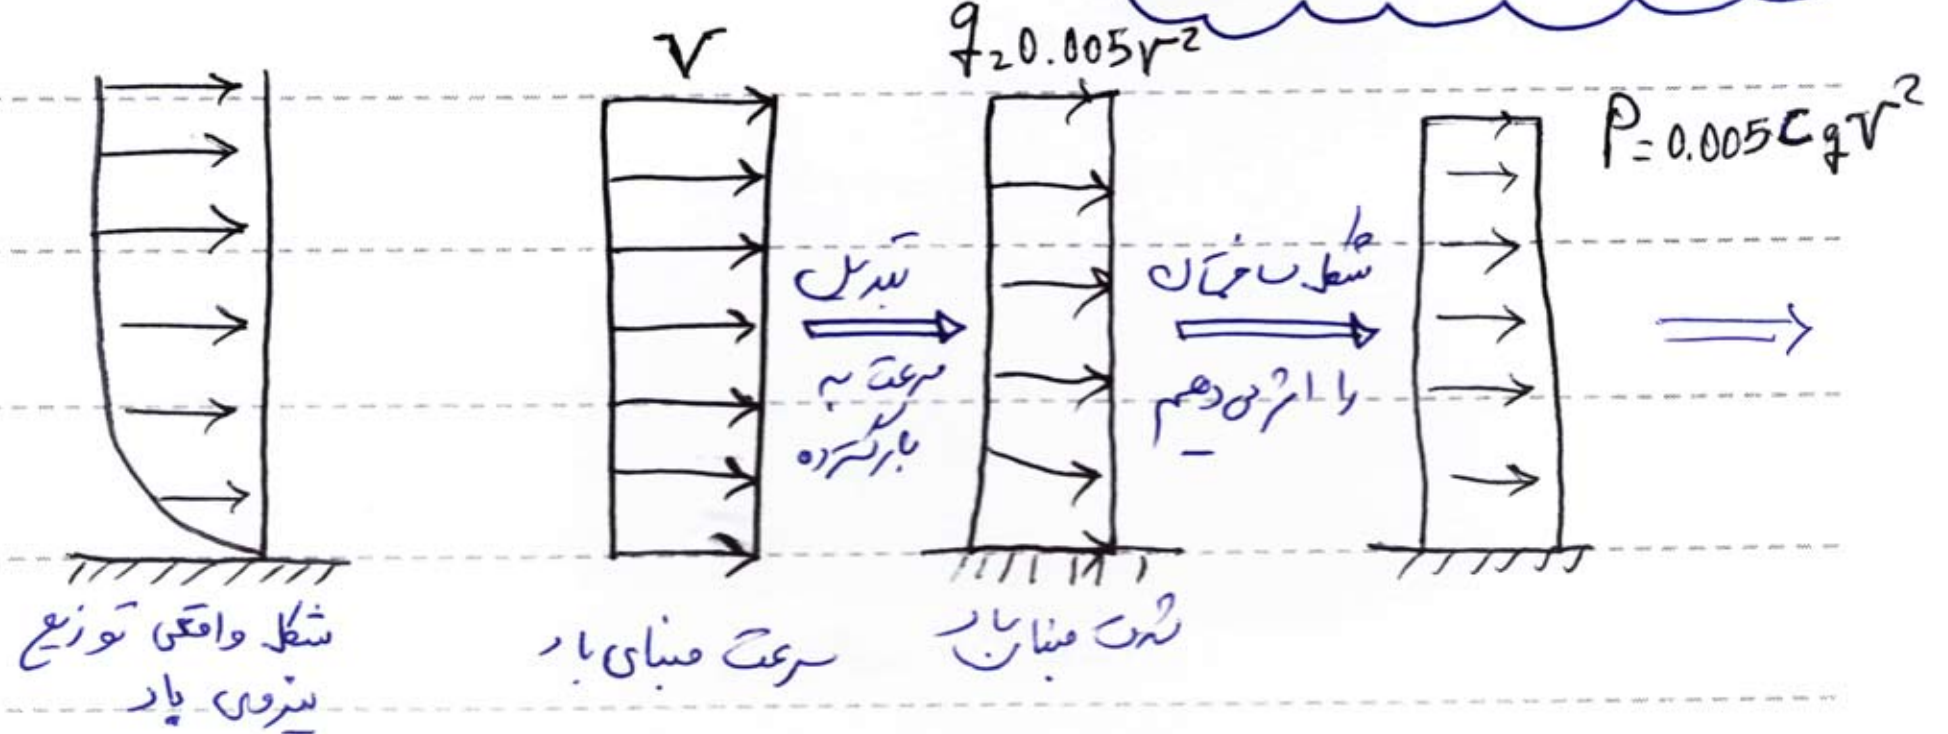 V
q=0.005V²
P=0.005CqV²
تبدیل
سرعت به
بار گسترده
شکل ساختمان
را اثر می دهیم
شکل واقعی توزیع
نیروی باد
سرعت مبنای باد
شدت مبنای باد